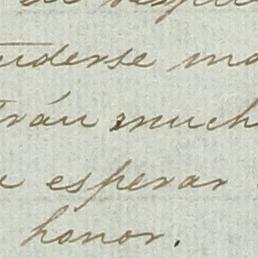 uderse ma
trán much
a esperar
honor.